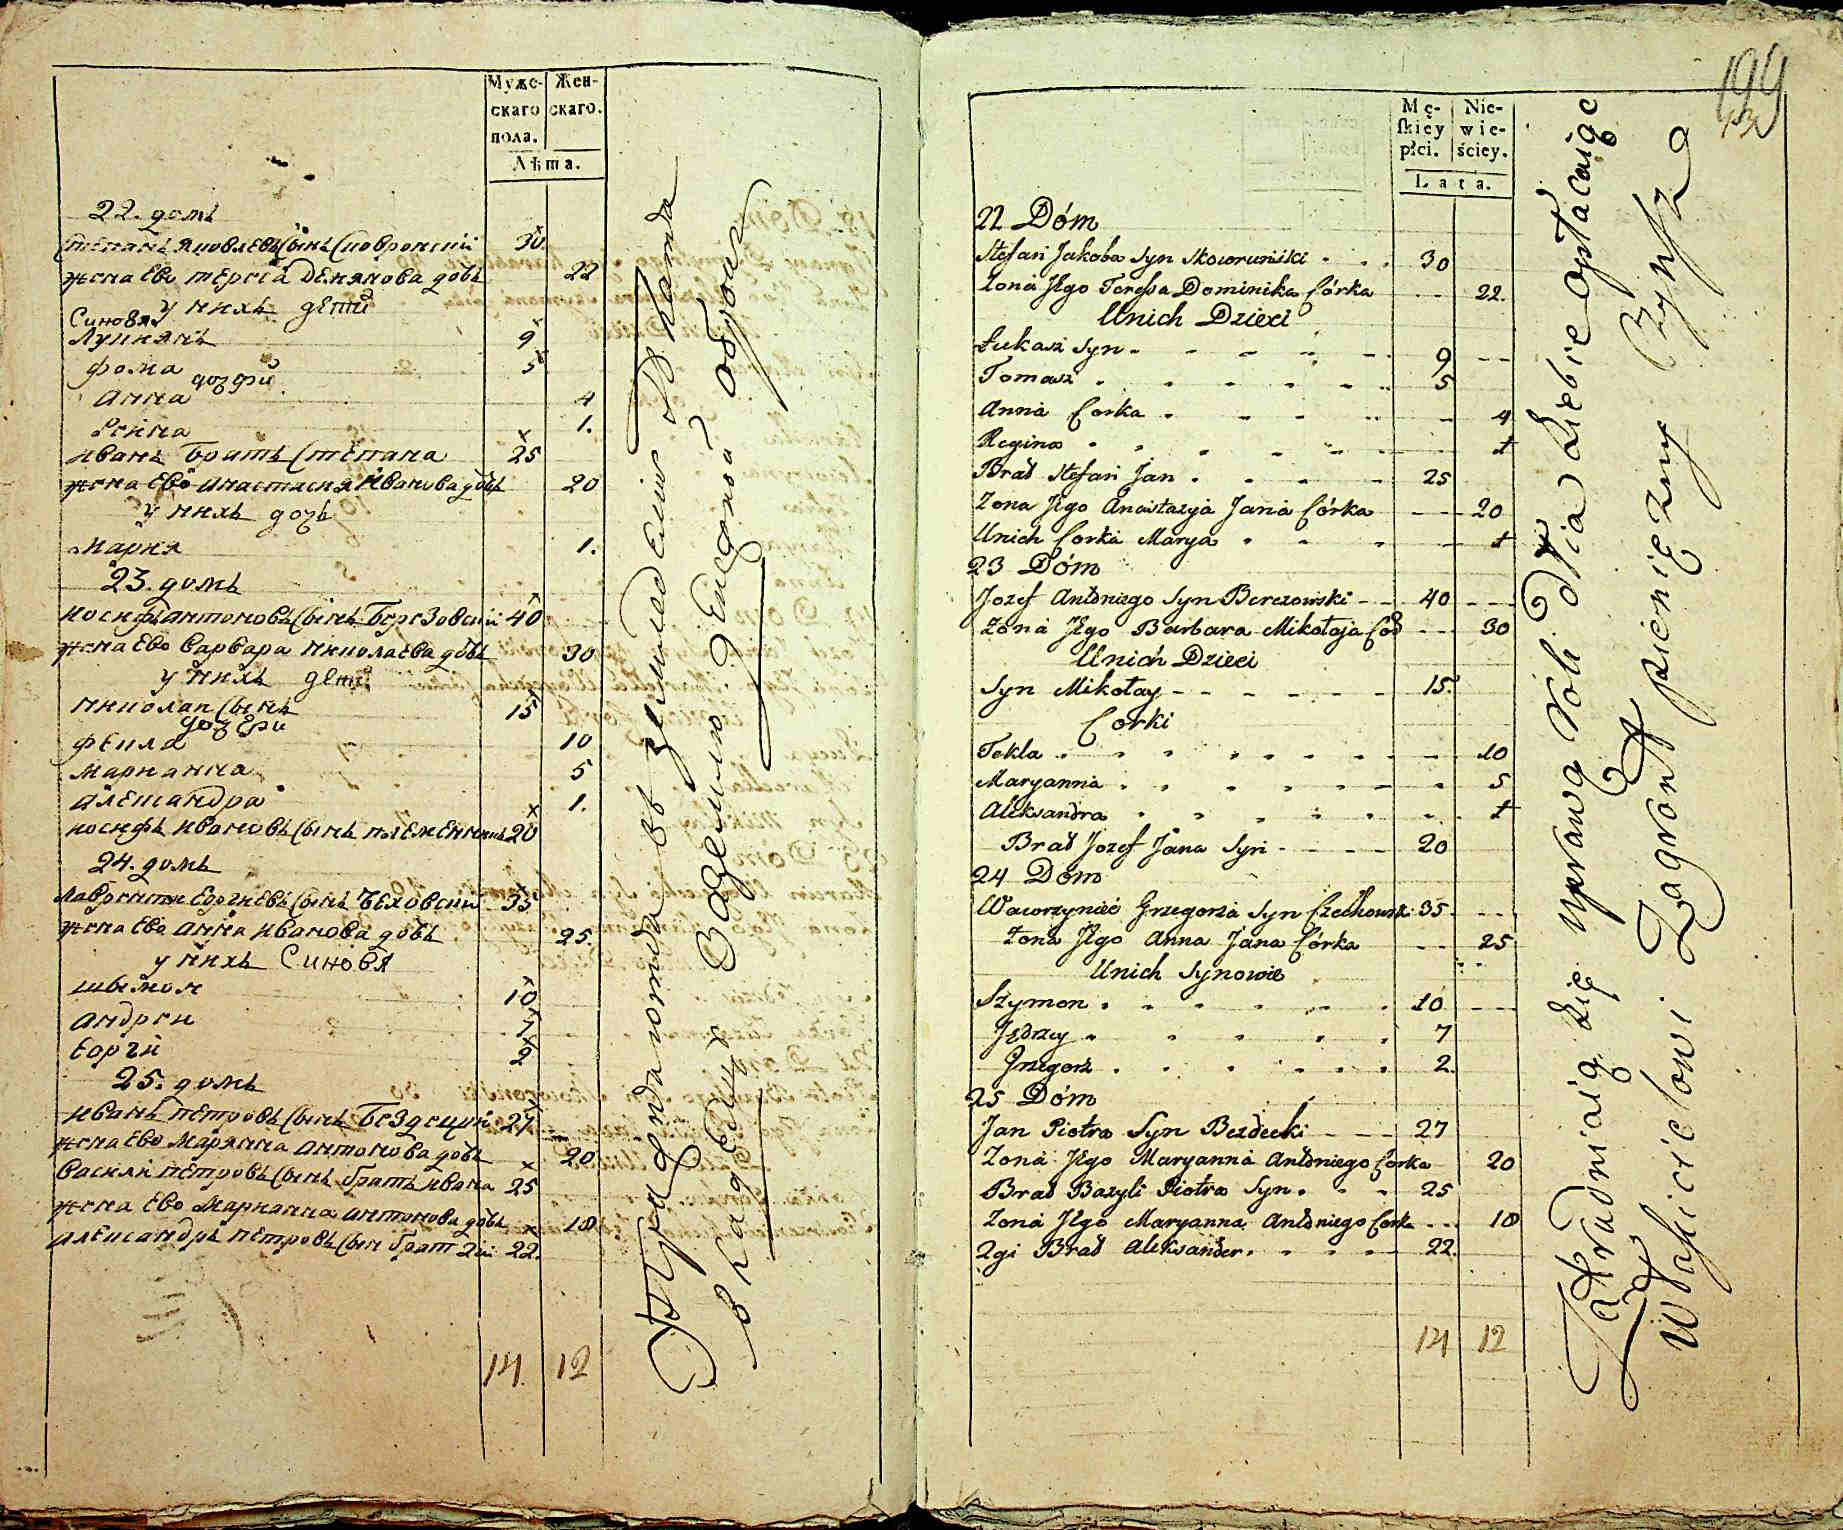 Муже-
скаго
пола.
Жен-
скаго.
Лѣта.
22. домъ
Степанъ Яковлевъ Сынъ Сковронскій 30
жена Ево Терсіа Деменкова дочь 22
у нихъ дети
Синовя
Лукиянъ 9
Фома 5
дочери
Анна 4
Регина 1.
Иванъ Братъ Степана 25
жена Ево Анастасия Иванова дочь 20
у нихъ дочь
Мария 1.
23. домъ
Иосифъ Антоновъ Сынъ Березовскій 40
жена Ево Варвара Николаева дочь 30
у нихъ дети
Николай Сынъ 15
дочери
Фекла 10
Марианна 5
Александра 1.
Иосифъ Ивановъ Сынъ племенникъ 20
24. домъ
Лаврентий Егоргиевъ Сынъ Чеховский 35
жена Ева Анна Иванова дочь 25.
у нихъ Синовя
Шымон 10
Андреи 7
Еоргий 2
25. домъ
Иванъ Петровъ Сынъ Бездецкий 27
жена Ево Марянна Антонова дочь 20
Василий Петровъ Сынъ братъ Ивана 25
жена Ево Марианна Антонова дочь 18
Александръ Петровъ Сын брат 2й 22.
14 12
в земледелию
владелцу Зоземлю денежной оброкъ
194
Mę-
skiey
płci.
Nie-
wie-
ściey.
Lata.
22 Dóm
Stefan Jakoba Syn Skowruński 30
Żona Jego Teressa Dominika Córka 22.
Unich Dzieci
Łukasz Syn 9
Tomasz 5
Anna Corka 4
Regina 1
Brat Stefan Jan 25
Zona Jego Anastazya Jana Córka 20
Unich Corka Marya 1
23 Dóm
Jozef Antoniego Syn Berezowski 40
Zona Jego Barbara Mikołaja Cór 30
Unich Dzieci
Syn Mikołay 15.
Corki
Tekla 10
Maryanna 5
Aleksandra 1
Brat Jozef Jana Syn 20
24 Dom
Wawrzyniec Grzegorza Syn Czechowski 35
Żona Jego Anna Jana Córka 25
Unich Synowie
Szymon 10
Jędrzy 7
Grzegorz 2
25 Dóm
Jan Piotra Syn Bezdecki 27
Zona Jego Maryanna Antoniego Corka 20
Brat Bazyli Piotra Syn 25
Zona Jego Maryanna Antoniego Corka 18
2gi Brat Aleksander 22
14 12
Zatrudniaią się uprawą Roli dla siebie opłacaiąc
Właścicielowi Zagront pieniężny Czynsz